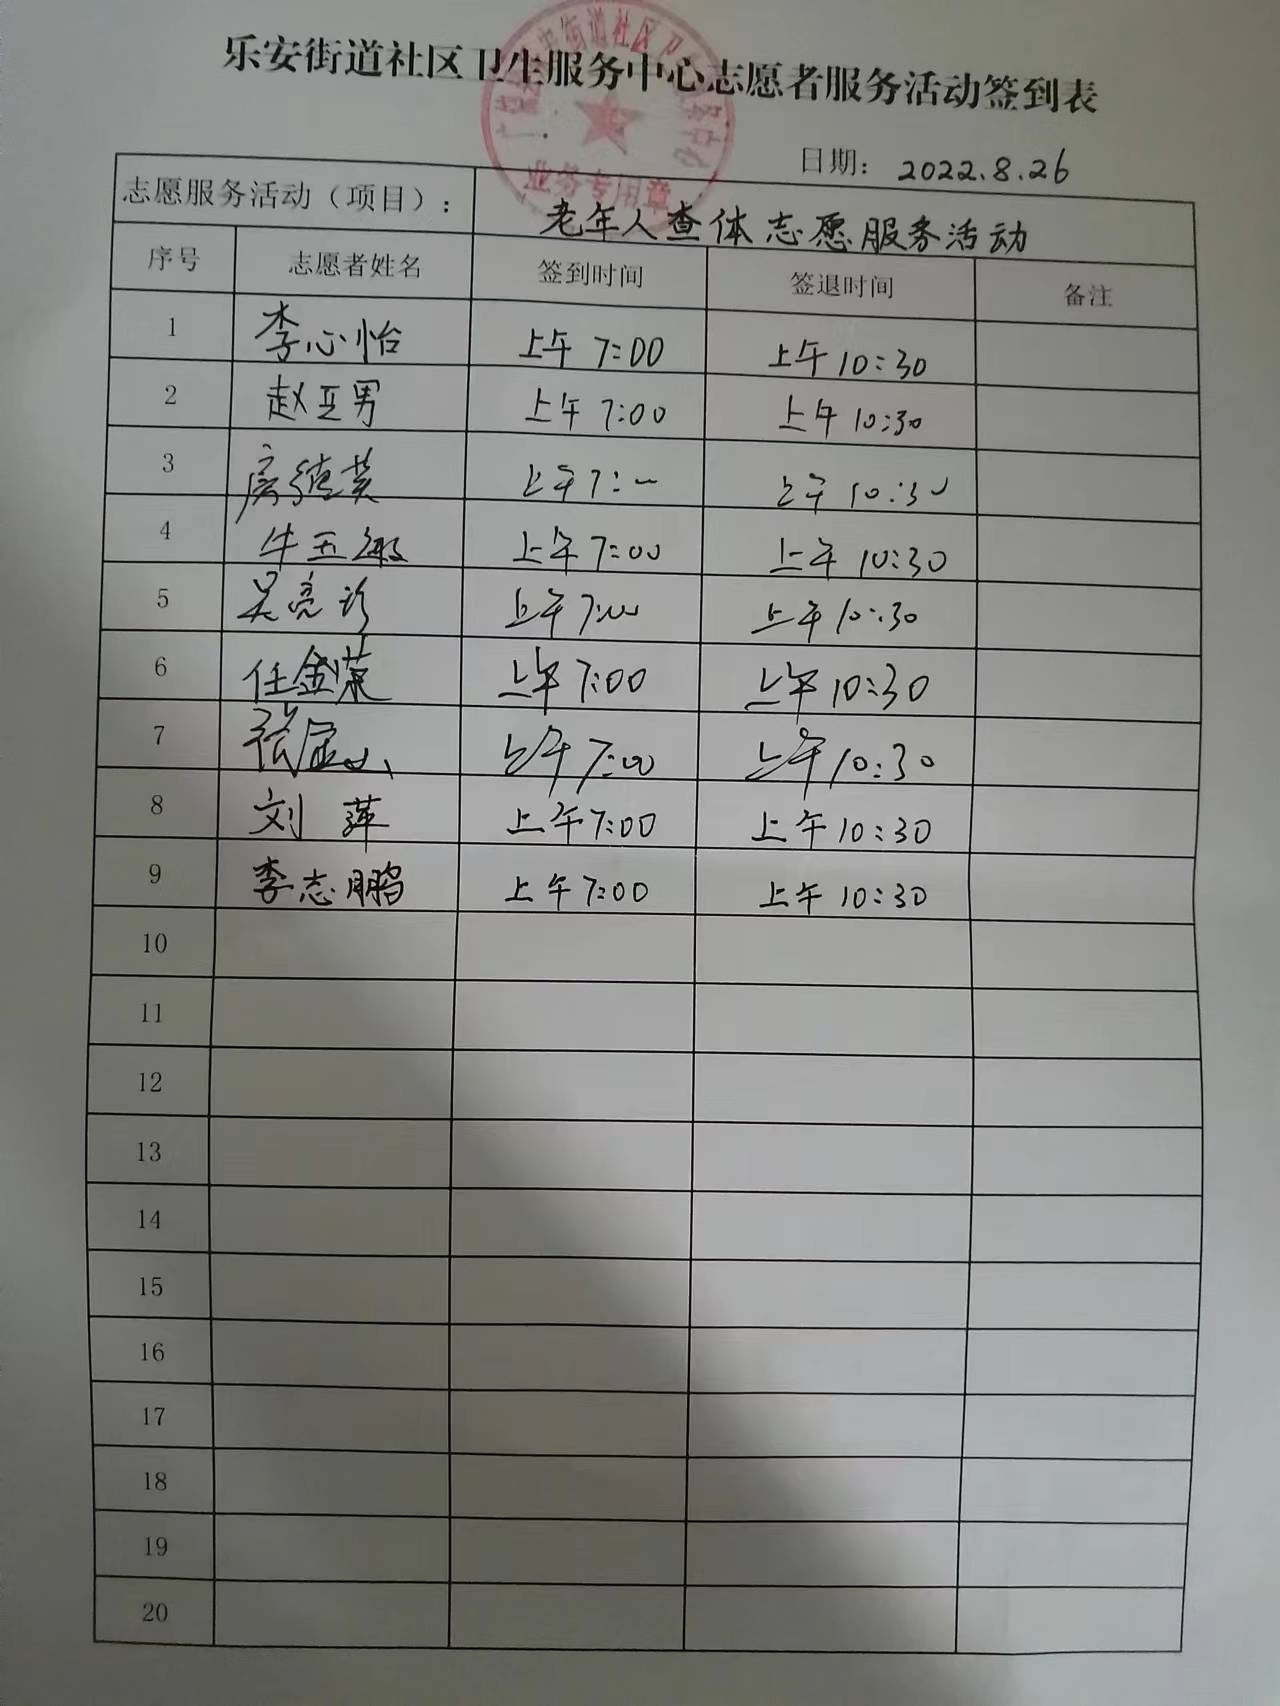 乐安街道社区卫生服务中心志愿者服务活动签到表
业务专用章
日期: 2022.8.26
志愿服务活动（项目）: 老年人查体志愿服务活动
序号 志愿者姓名 签到时间 签退时间 备注
1 李心怡 上午 7:00 上午 10:30
2 赵亚男 上午 7:00 上午 10:30
3 上午 7: 上午 10:30
4 牛玉敏 上午 7:00 上午 10:30
5 吴亮珍 上午 7:00 上午 10:30
6 任金荣 上午 7:00 上午 10:30
7 张 上午 7:00 上午 10:30
8 刘萍 上午 7:00 上午 10:30
9 李志鹏 上午 7:00 上午 10:30
10
11
12
13
14
15
16
17
18
19
20